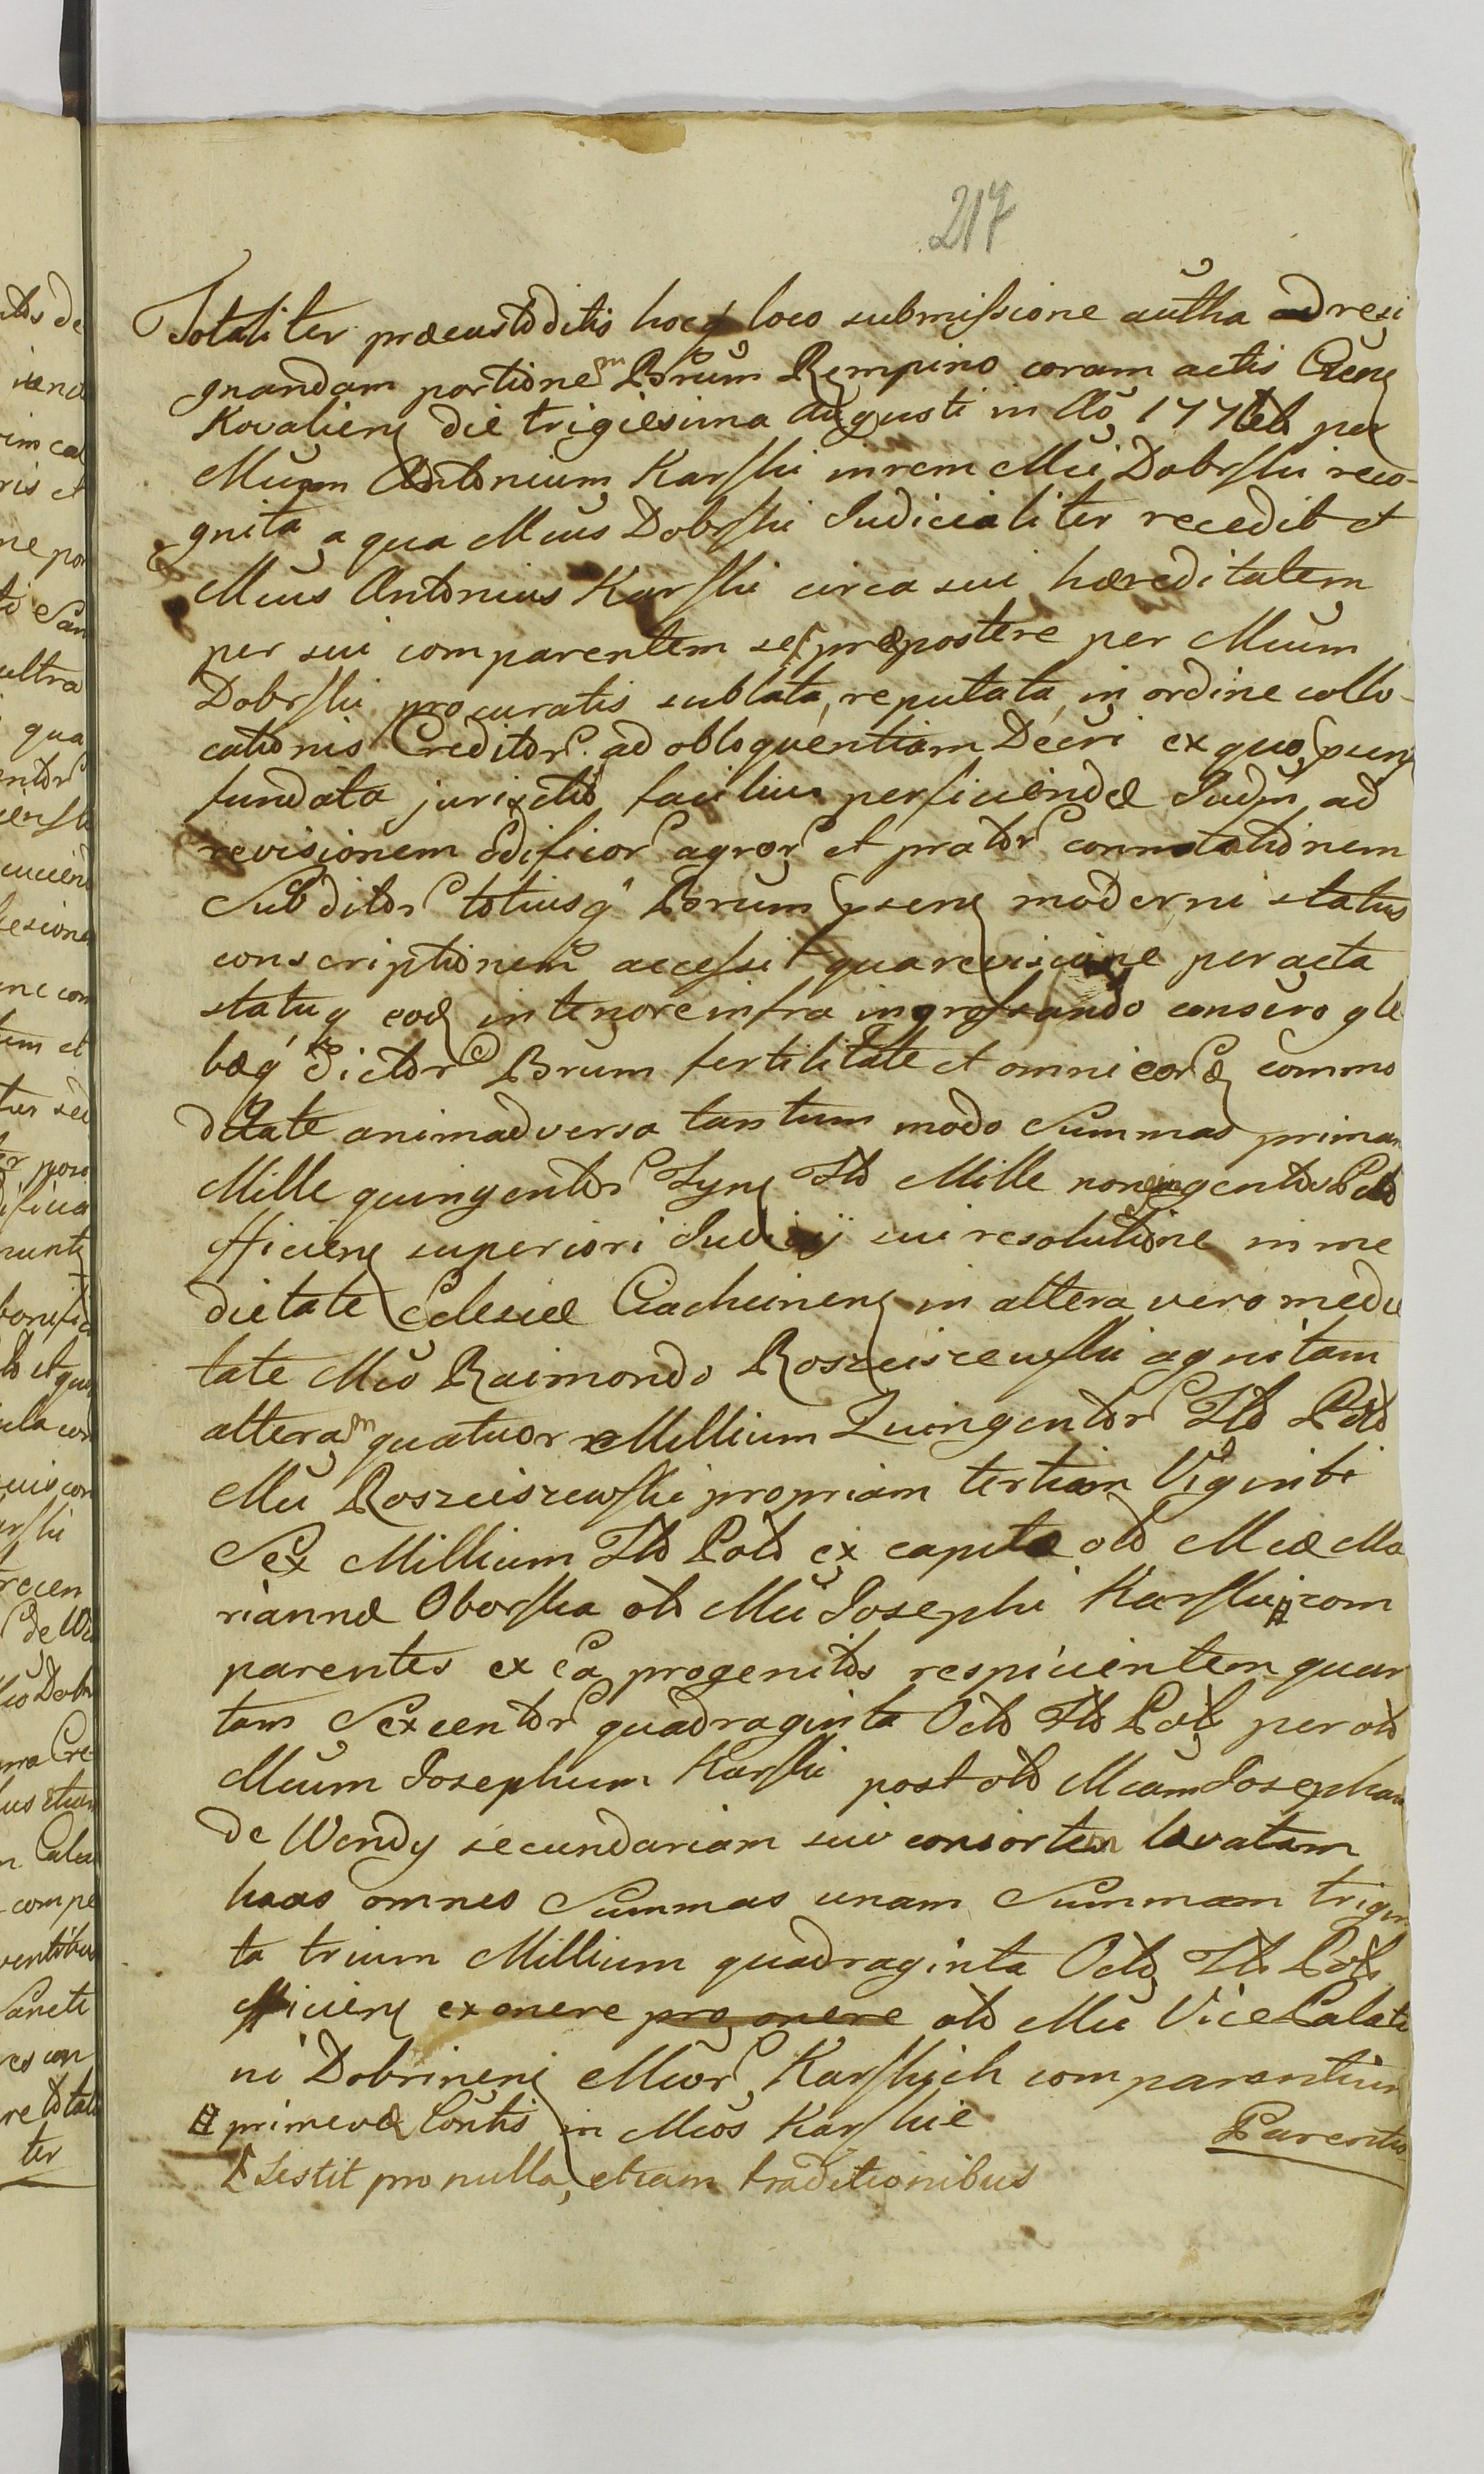 217
Totaliter præcustoditis hocq loco submissione autha ad resi
gnandam portionem Brum Rempino coram actis
Kovalien die trigiesima Augusti in Ao 177 per
Mum Antonium Karski in rem Mci Dobrski reco-
gnita a qua Mcus Dobrski Judicialiter recedit et
Mcus Antonius Karski circa sui hæreditatem
per sui comparentem se præpostere per Mcum
Dobrski procuratis sublata, reputata, in ordine collo-
cationis Creditor ad obloquentiam Decri ex quo
fundata jurisctio facilius perficiendæ Judm, ad
revisionem ædificior agror et prator connotationem
Subditor totiusq Brum psen moderni status
conscriptionem accessit qua revisione peracta
statuq eod in tenore infra ingrossando consero gle
bæq dictor Brum fertilitate et omni eor commo
ditate animadversa tantum modo Summas primam
Mille quingentor Tyn Flo Mille noningentos Pol
efficien superiori Judicij sui resolutione in me
dietate Eclesiæ Ciachcinen in altera vero medie
tate Mco Raimondo Rosciszewski agnitam
alteram quatuor Millium Quingentor Flo Pol
Mci Rosciszewski propriam tertiam Viginti
Sex Millium Flo Pol ex capite olo Mcæ Ma
riannæ Oborska olo Mci Josephi Karski com
parentes ex ea progenitos respicientem quar
tam Sexcentor quadraginta Octo Flo Pol per olo
Mcum Josephum Karski post olo Mcam Josepham
de Wendy secundariam sui consortem levatam
has omnes Summas unam Summam trigin
ta trium Millium quadraginta Octo Flo Pol
efficien ex onere pro onere olo Mci Vice Palati
ni Dobrinen Mcor Karskich comparentium
primevæ Contis in Mcos Karskie
Parentis
Sistit pro nulla, etiam traditionibus